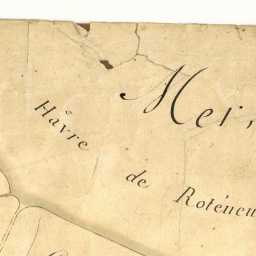 Mer,
Hâvre
de Roténeu